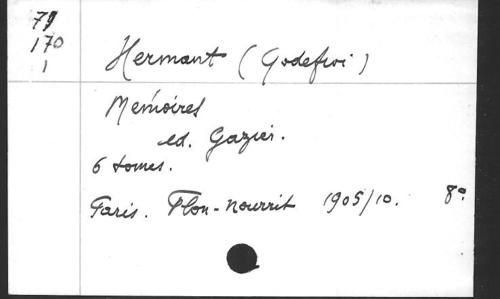 79
170
1
Hermant (Godefroi)
Mémoires
ed. Gazier.
6 tomes.
Paris. Plon-Nourrit 1905/10. 8°